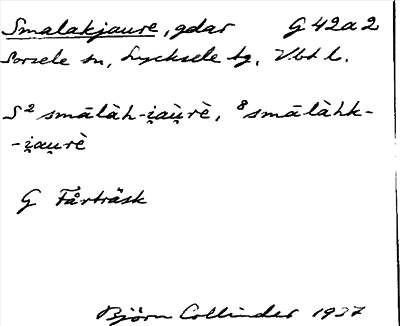 Smalakjaure, gdar G 42a2
Sorsele sn, Lycksele tg, Vbt l.
S² smālàh-i̯au̯rè, ⁸smālàhk-
-i̯au̯rè
G Fårträsk
Björn Collinder 1937